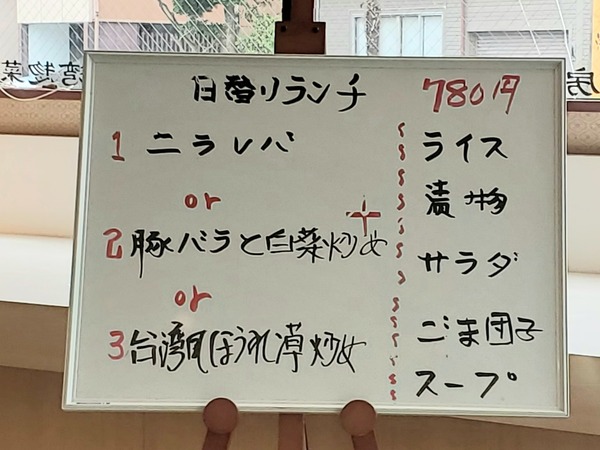 日替りランチ 780円
1 ニラレバ
or
2 豚バラと白菜炒め
or
3 台湾風ほうれん草炒め
+
ライス
漬物
サラダ
ごま団子
スープ